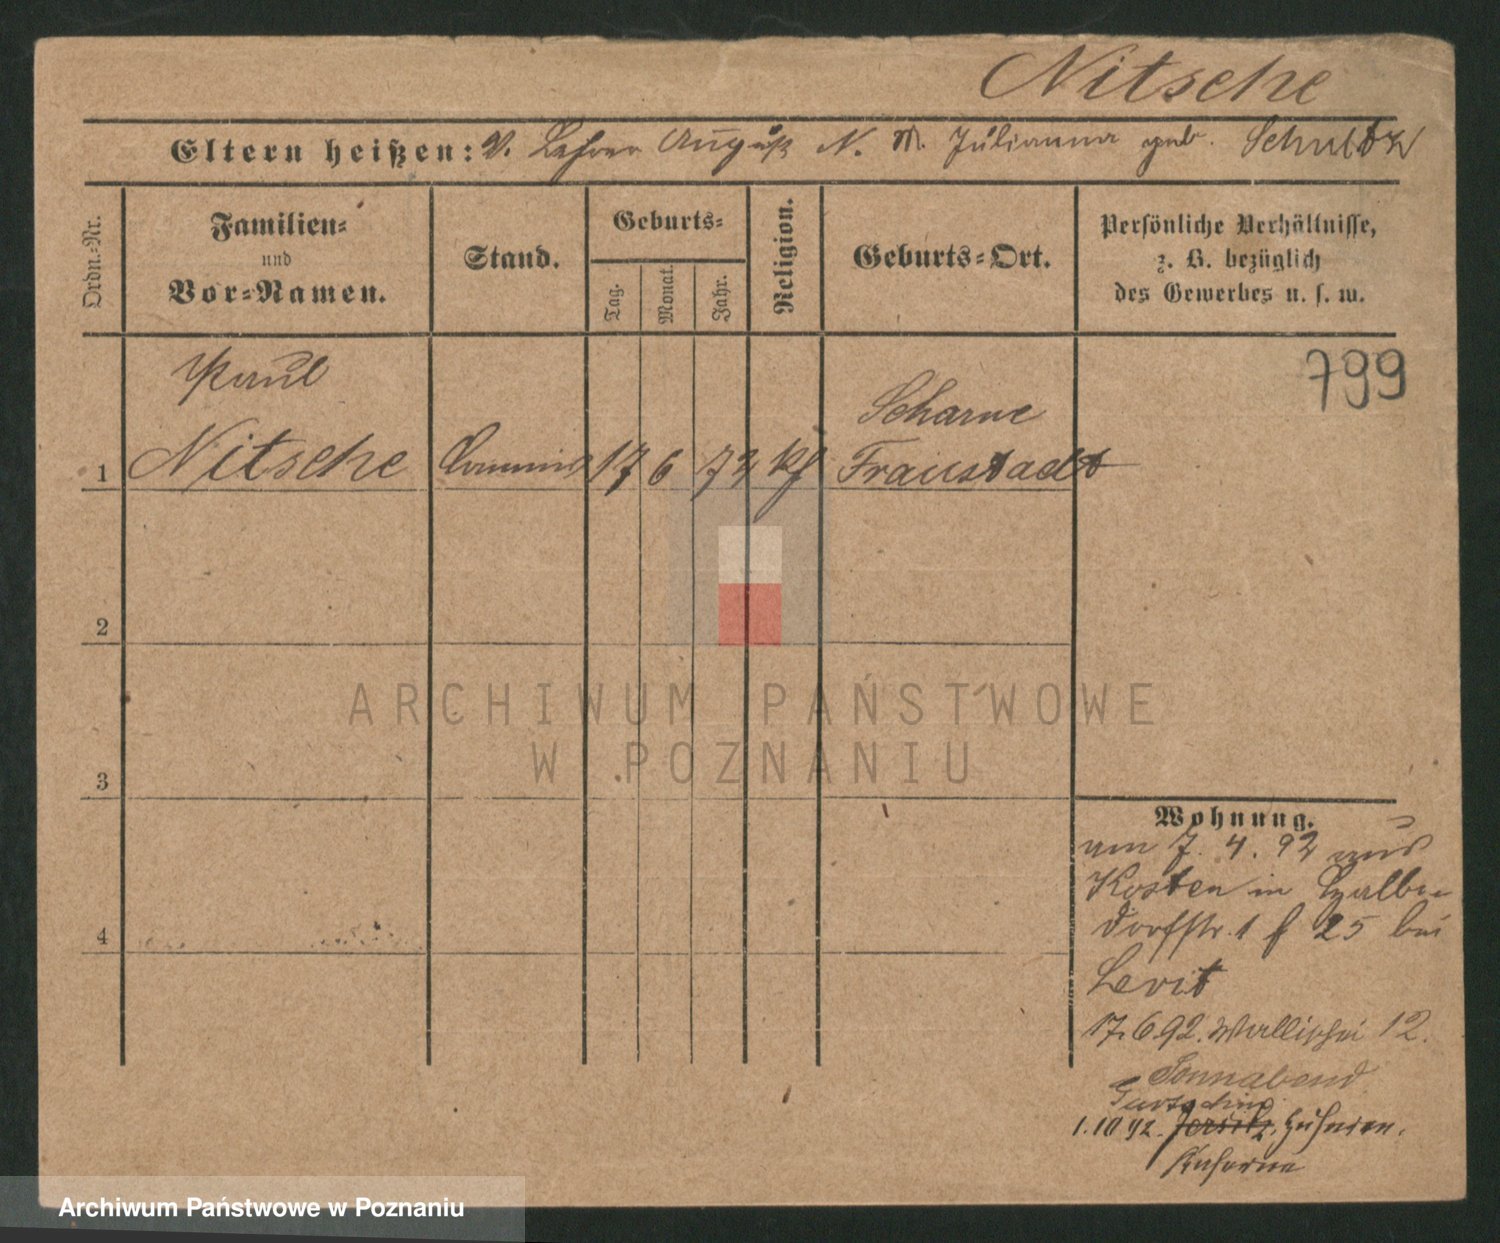 Nitsche
Eltern heißen: V. Lehrer August N. M. Julianna geb. Schultz
Ordn.-Nr.
Familien-
und
Vor-Namen.
Stand.
Geburts-
Tag.
Monat.
Jahr.
Religion.
Geburts-Ort.
Persönliche Verhältnisse,
z. B. bezüglich
des Gewerbes u. s. w.
799
Paul
Scharne
1 Nitsche Commis 17 6 72 kf Fraustadt
2
3
4
Wohnung.
am 7. 4. 92 aus
Kosten in
dorfstr. 1 f 25 bei
Levit
17.6.92. Wallischei 12.
Sonnabend
1.10 92. Jersitz,
Kaserne
ARCHIWUM PAŃSTWOWE
W POZNANIU
Archiwum Państwowe w Poznaniu